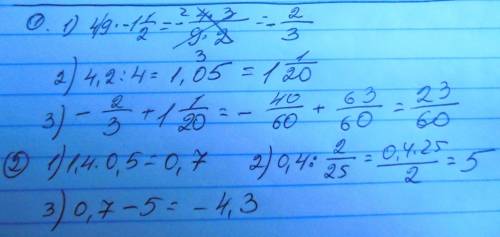 ①. 1) 4/9 · -1 1/2 = - 4·3/9·2 = - 2/3
2
3
2) 4,2 : 4 = 1,05 = 1 1/20
3) - 2/3 + 1 1/20 = - 40/60 + 63/60 = 23/60
⑤ 1) 1,4 · 0,5 = 0,7 2) 0,4 : 2/25 = 0,4·25/2 = 5
3) 0,7 - 5 = - 4,3